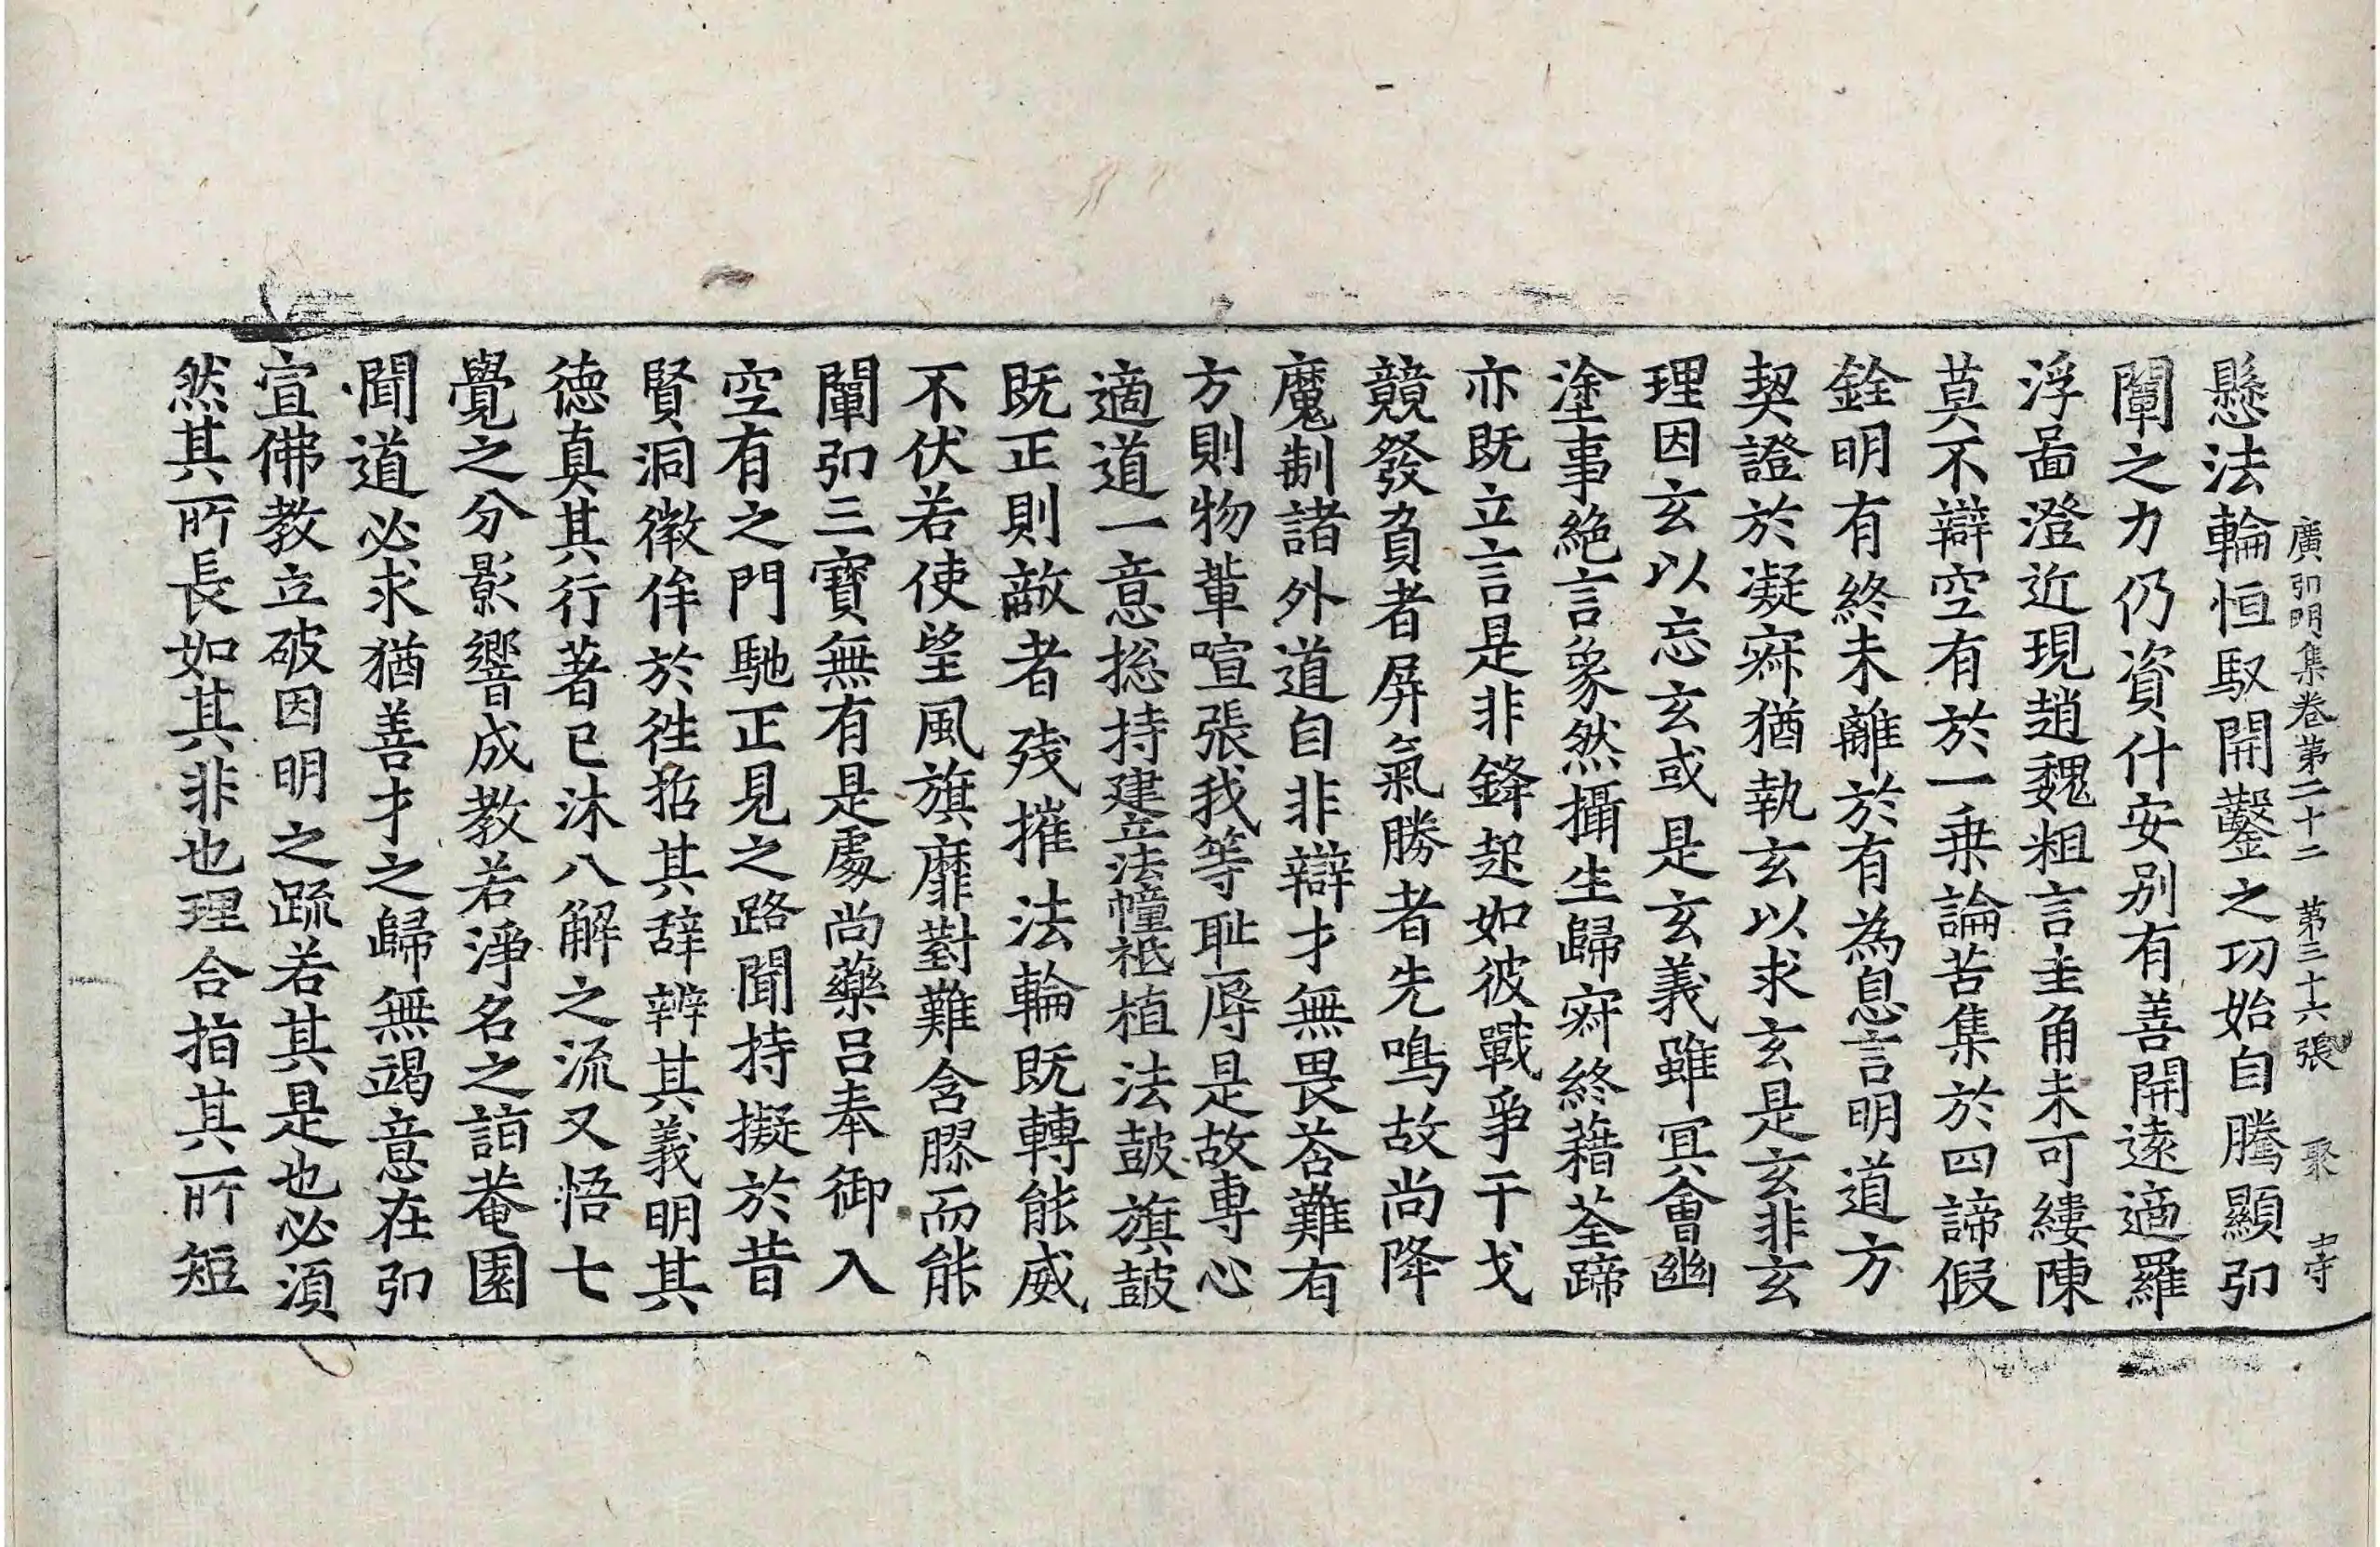 廣弘明集卷第二十二 第三十六張 聚
懸法輪恒馭開鑿之功始自騰顯弘
闡之力仍資什安別有善開遠適羅
浮啚澄近現趙魏粗言圭角未可縷陳
莫不辯空有於一乗論苦集於四諦假
銓明有終未離於有為息言明道方
契證於凝寂猶執玄以求玄是玄非玄
理因玄以忘玄或是玄義雖冥會幽
塗事絶言象然攝生歸寂終藉荃蹄
亦既立言是非鋒起如彼戰爭干戈
競發負者屏氣勝者先鳴故尚降
魔制諸外道自非辯才無畏荅難有
方則物輩喧張我等恥辱是故專心
適道一意捴持建立法幢祇植法鼓旗鼓
既正則敵者殘摧法輪既轉能威
不伏若使望風旗靡對難含膠而能
闡弘三寶無有是處尚藥吕奉御入
空有之門馳正見之路聞持擬於昔
賢洞微侔於徃招其辞辨其義明其
徳真其行著已沐八解之流又悟七
覺之分影響成教若淨名之詣菴園
聞道必求猶善才之歸無竭意在弘
宣佛教立破因明之疏若其是也必須
然其所長如其非也理合指其所短